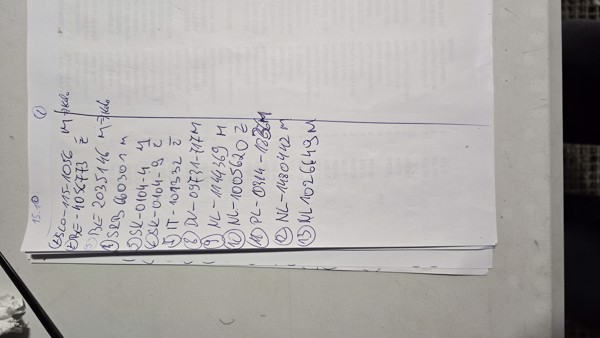 15.10
①
① SCO-115-1056 M
② BE-4054773 Ž
③ BE 2035146 M
④ SRB 060301 M
⑤ SK-0104-4 M
⑥ SK-0104-9 Ž
⑦ IT-101332 Ž
⑧ DV-09731-117 M
⑨ NL-1144369 M
⑩ NL-1005620 Ž
⑪ PL-0314- M
⑫ NL-1480442 M
⑬ NL 1026649 M